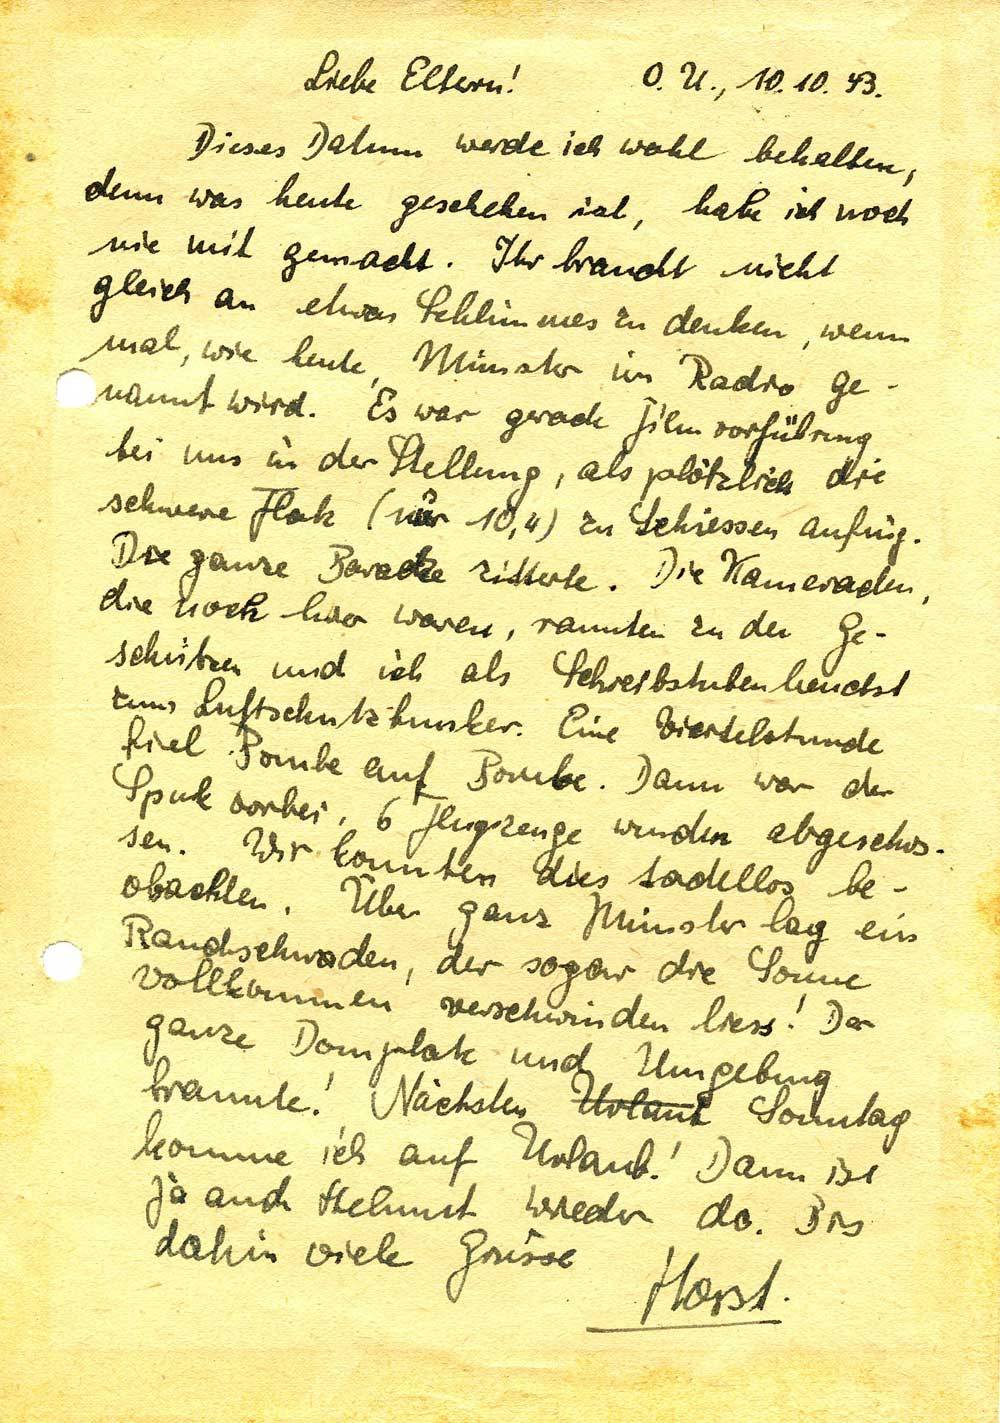 Liebe Eltern! O. U., 10. 10. 43.
Dieses Datum werde ich wohl behalten,
denn was heute geschehen ist, habe ich noch
nie mit gemacht. Ihr braucht nicht
gleich an etwas Schlimmes zu denken, wenn
mal, wie heute, Münster im Radio ge-
nannt wird. Es war gerade Filmvorführung
bei uns in der Stellung, als plötzlich die
schwere Flak (nur 10,4) zu Schiessen anfing.
Die ganze Baracke zitterte. Die Kameraden,
die noch hier waren, rannten zu den Ge-
schützen und ich als Schreibstubenhengst
zum Luftschutzbunker. Eine Viertelstunde
fiel Bombe auf Bombe. Dann war der
Spuk vorbei. 6 Flugzeuge wurden abgeschos-
sen. Wir konnten dies tadellos be-
obachten. Über ganz Münster lag ein
Rauchschwaden, der sogar die Sonne
vollkommen verschwinden liess! Der
ganze Domplatz und Umgebung
brannte! Nächsten Urlaub Sonntag
komme ich auf Urlaub! Dann ist
ja auch Helmut wieder da. Bis
dahin viele Grüsse
Horst.